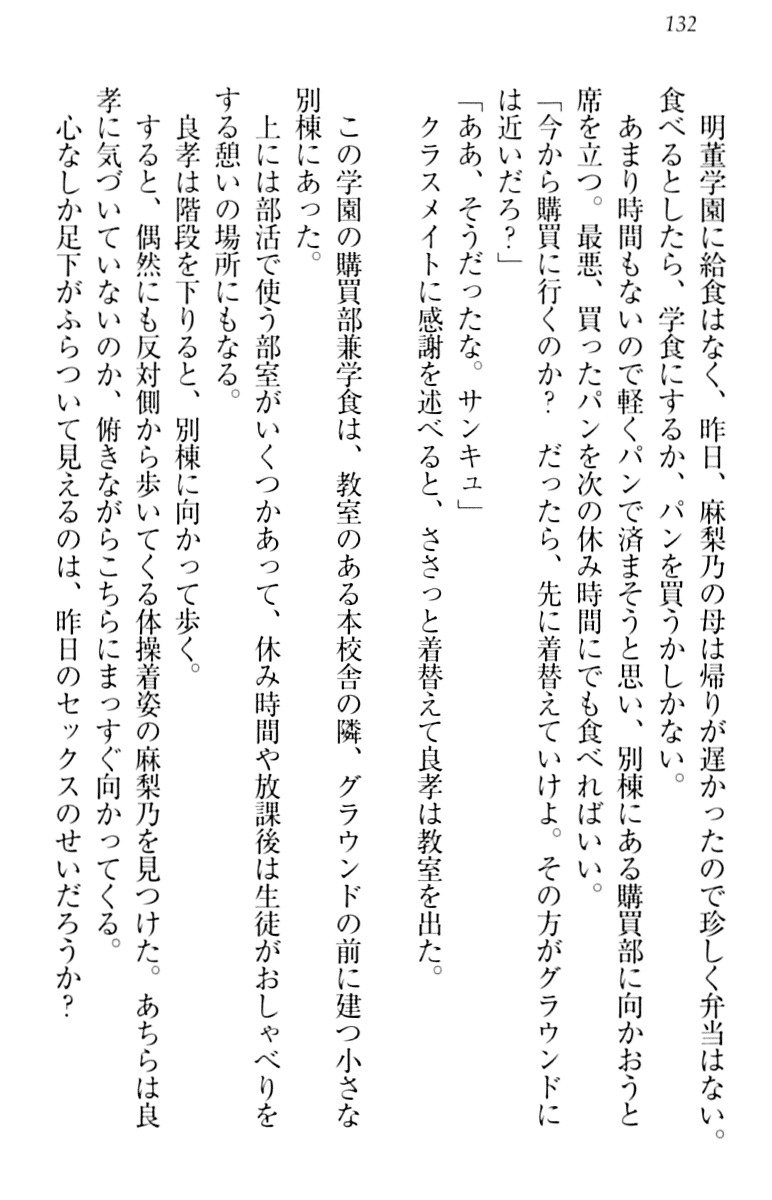 132
明董学園に給食はなく、昨日、麻梨乃の母は帰りが遅かったので珍しく弁当はない。
食べるとしたら、学食にするか、パンを買うかしかない。
あまり時間もないので軽くパンで済まそうと思い、別棟にある購買部に向かおうと
席を立つ。最悪、買ったパンを次の休み時間にでも食べればいい。
「今から購買に行くのか？　だったら、先に着替えていけよ。その方がグラウンドに
は近いだろ？」
「ああ、そうだったな。サンキュ」
クラスメイトに感謝を述べると、ささっと着替えて良孝は教室を出た。
この学園の購買部兼学食は、教室のある本校舎の隣、グラウンドの前に建つ小さな
別棟にあった。
上には部活で使う部室がいくつかあって、休み時間や放課後は生徒がおしゃべりを
する憩いの場所にもなる。
良孝は階段を下りると、別棟に向かって歩く。
すると、偶然にも反対側から歩いてくる体操着姿の麻梨乃を見つけた。あちらは良
孝に気づいていないのか、俯きながらこちらにまっすぐ向かってくる。
心なしか足下がふらついて見えるのは、昨日のセックスのせいだろうか？